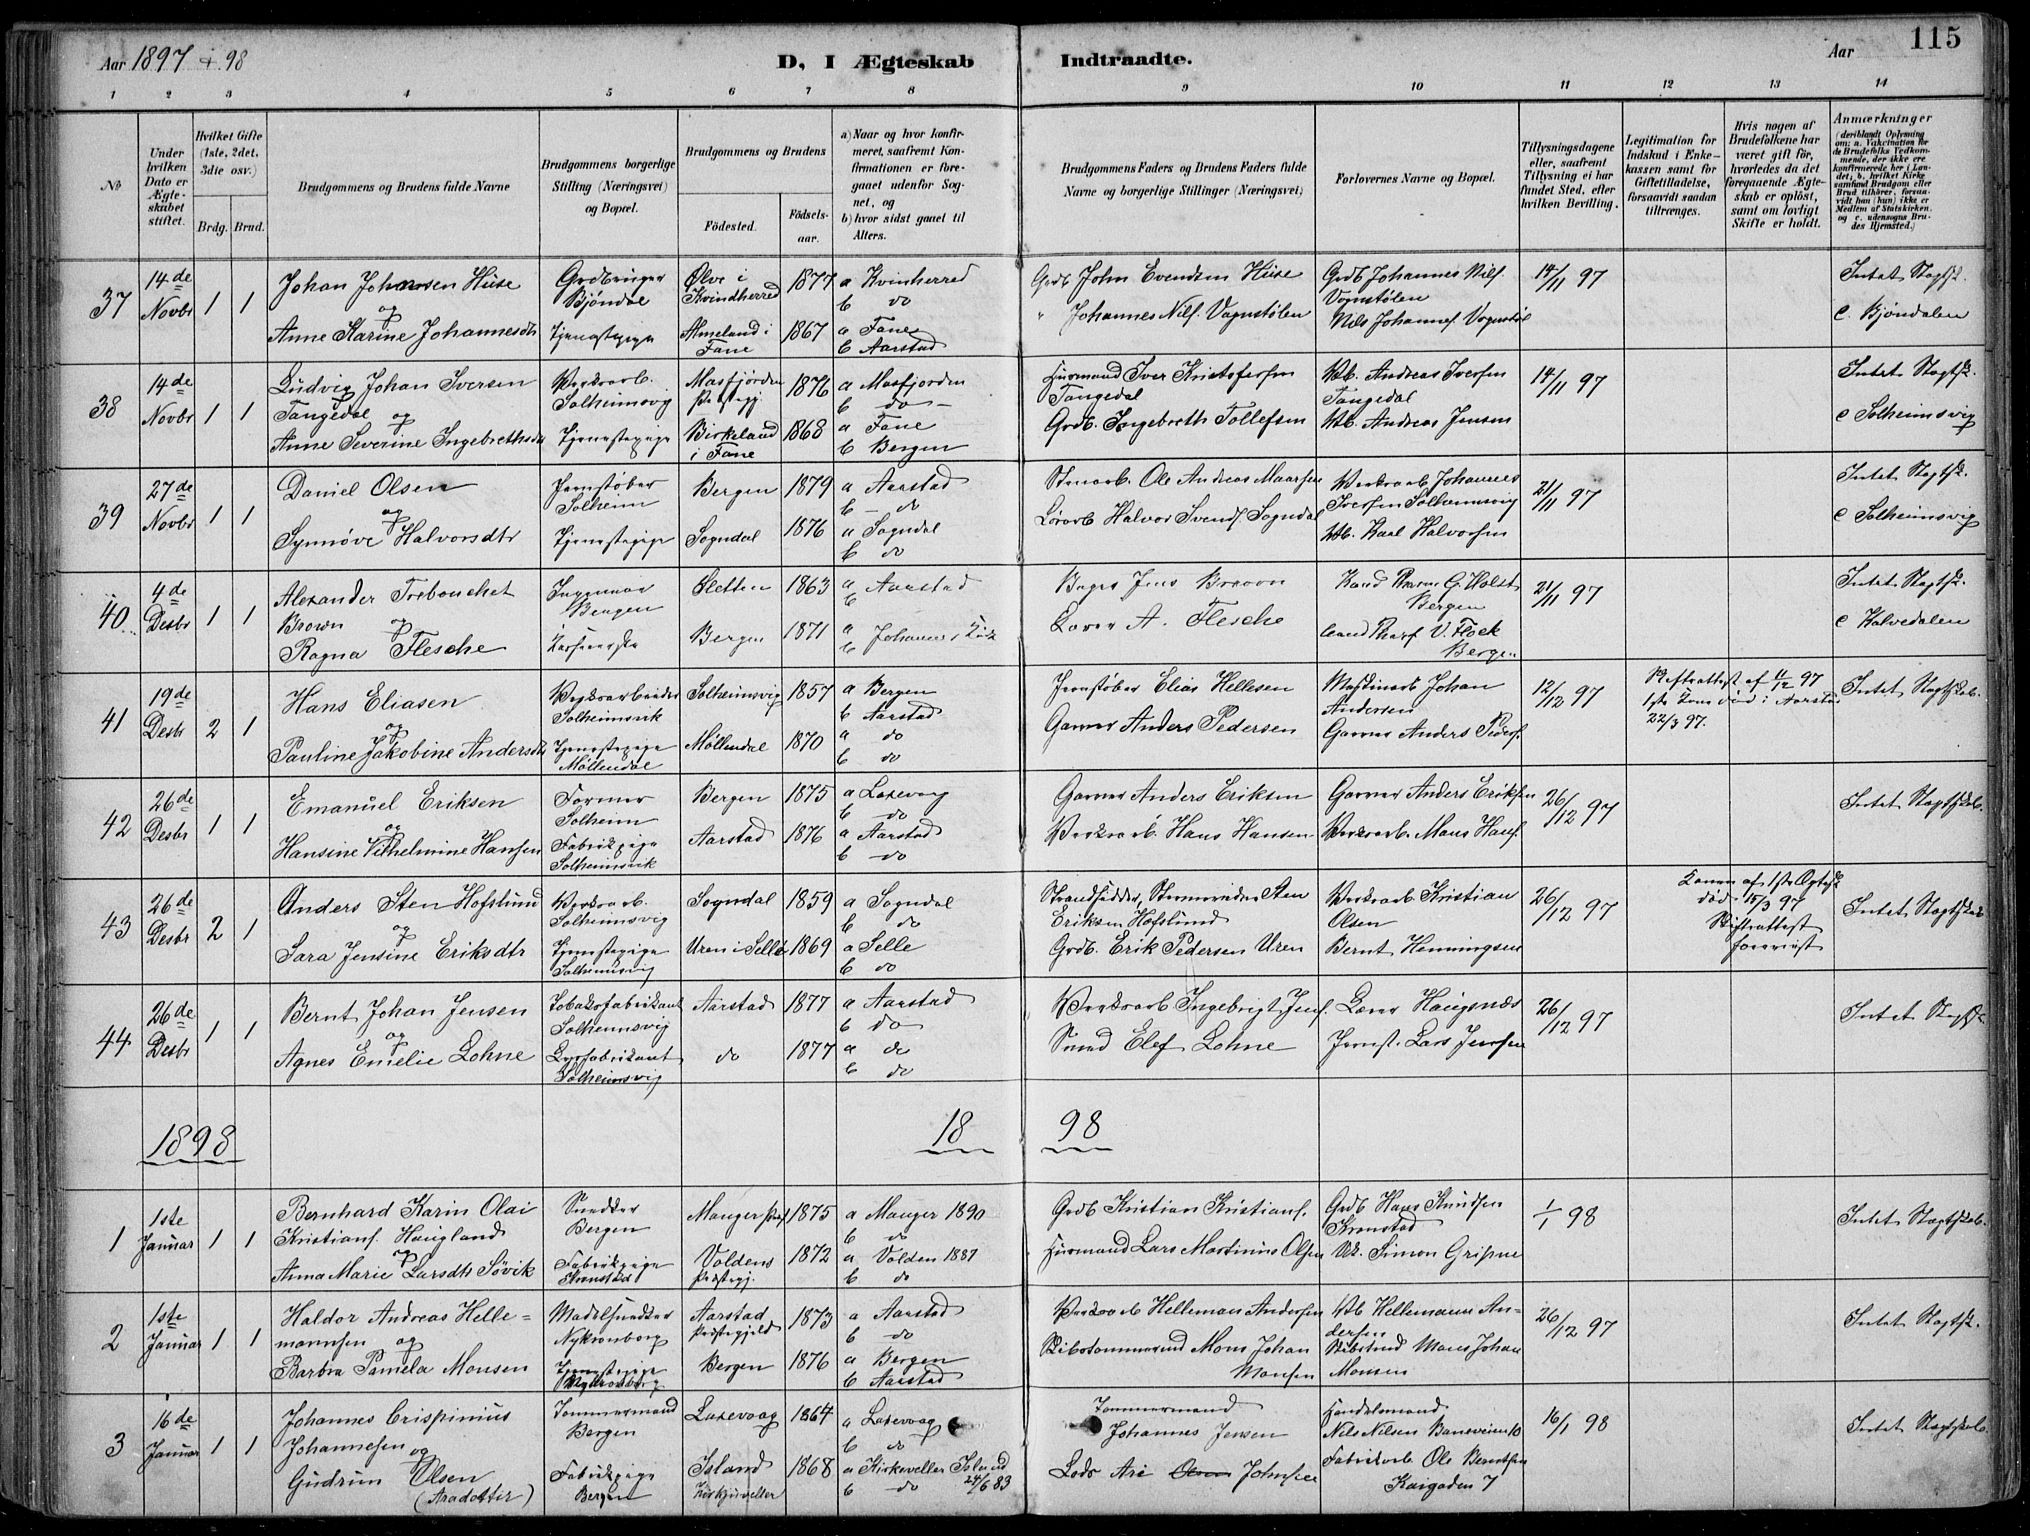 Aar 1897 + 98
D, I Ægteskab Indtraadte.
Aar
115
1 2 3 4 5 6 7 8 9 10 11 12 13 14
No
Under hvilken Dato er Ægteskabet stiftet.
Hvilket Gifte (1ste, 2det, 3die osv.)
Brdg. Brud.
Brudgommens og Brudens fulde Navne
Brudgommens borgerlige Stilling (Næringsvei) og Bopæl.
Brudgommens og Brudens
Fødested.
Fødselsaar.
a) Naar og hvor konfirmeret, saafremt Konfirmationen er foregaaet udenfor Sognet, og
b) hvor sidst gaaet til Alters.
Brudgommens Faders og Brudens Faders fulde Navne og borgerlige Stillinger (Næringsvei)
Forlovernes Navne og Bopæl.
Tillysningsdagene eller, saafremt Tillysning ei har fundet Sted, efter hvilken Bevilling.
Legitimation for Indskud i Enkekassen samt for Giftetilladelse, forsaavidt saadan tiltrænges.
Hvis nogen af Brudefolkene har været gift før, hvorledes da det foregaaende Ægteskab er opløst, samt om lovligt Skifte er holdt.
Anmærkninger (deriblandt Oplysning om: a. Vaccination for de Brudefolks Vedkommende, der ikke ere konfirmerede her i Landet; b. hvilket Kirkesamfund Brudgom eller Brud tilhører, forsaavidt han (hun) ikke er Medlem af Statskirken, og c. udensogns Brudes Hjemsted.)
37 14de Novbr 1 1
Johan Johnsen Huse
og
Anne Karine Johannesdtr
Grdbruger Bjøndal
Tjenestepige
Ølve i Kvindherred 1877
Fane 1867
a Kvinherred
b do
a Fane
b Aarstad
Grdb John Evendsen Huse
" Johannes Nils. Vognstølen
Grdb Johannes Nils. Vognstølen
Nils Johannes. Vognstøl
14/11 97
Intet Slægtsk.
c. Bjøndalen
38 14de Novbr 1 1
Ludvig Johan Iversen
Tangedal og
Anne Severine Ingebrethsdtr
Verksarb. Solheimsvig
Tjenestepige
Masfjorden Prestegj 1876
Birkeland i Fane 1868
a Masfjorden
b do
a Fane
b Bergen
Husmand Iver Kristofersen Tangedal
Grdb. Ingebreth Tollefsen
Vb. Andreas Iversen Tangedal
Vb. Andreas Jensen
14/11 97
Intet Slægtsk.
c Solheimsvig
39 27de Novbr 1 1
Daniel Olsen
og
Synnøve Halvorsdtr
Jernstøber Solheim
Tjenestepige
Bergen 1879
Sogndal 1876
a Aarstad
b do
a Sogndal
b do
Stenarb. Ole Andreas Maarsen
Halvor Svends. Sogndal
Verksarb Johannes Iversen Solheimsvig
Vb. Karl Halvorsen
21/11 97
Intet Slægtsk.
c Solheimsvig
40 4de Desbr 1 1
Alexander Trebouchet
Brown og
Ragna Flesche
Ingeniør Bergen
Sletten 1863
Bergen 1871
a Aarstad
b
a
b Johannes Kirk
Bager Jens Brown
Lærer A. Flesche
Kand Pharm G. Holst Bergen
Cand Pharf V. Flock Bergen
21/11 97
Intet Slægtsk.
c Kalvedalen
41 19de Desbr 2 1
Hans Eliasen
og
Pauline Jakobine Andersdtr
Verksarbeider Solheimsvik
Tjenestepige Møllendal
Solheimsvig 1857
Møllendal 1870
a Bergen
b Aarstad
a do
b do
Jernstøber Elias Hellesen
Garver Anders Pedersen
Maskinarb Johan Andersen
Garver Anders Peders.
12/12 97
Skifteattest af 11/12 97
1ste Kone død i Aarstad 22/3 97.
Intet Slægtskab.
42 26de Desbr 1 1
Emanuel Eriksen
og
Hansine Vilhelmine Hansen
Former Solheim
Fabrikpige Solheimsvik
Bergen 1875
Aarstad 1876
a Laxevaag
b do
a Aarstad
b do
Garver Anders Eriksen
Verksarb. Hans Hansen
Garver Anders Eriksen
Verksarb. Mons Hans.
26/12 97
Intet Slægtskab.
43 26de Desbr 2 1
Anders Sten Hofslund
og
Sara Jensine Eriksdtr
Verksarb. Solheimsvig
Tjenestepige Solheimsvig
Sogndal 1859
Uren i Selle 1869
a Sogndal
b do
a Selle
b do
Strandsidder, Sten Eriksen Hofslund
Grdb. Erik Pedersen Uren
Verksarb Kristian Olsen
Bernt Henningsen
26/12 97
Konen af 1ste Ægtesk død 15/3 97
Skifteattest forevist
Intet Slægtskab
44 26de Desbr 1 1
Bernt Johan Jensen
og
Agnes Emelie Lohne
Tobaksfabrikant Solheimsvig
Solheimsvig
Aarstad 1877
do 1877
a Aarstad
b do
a do
b do
Verksarb Ingebrigt Jens.
Smed Elef Lohne
Lærer Haugsnæs
Jernst. Lars Jensen
26/12 97
Intet Slægtsk
1898 18 98
1 1ste Januar 1 1
Bernhard Karin Olai
Kristians. Haugland
og
Anna Marie Larsdtr Søvik
Snedker Bergen
Fabrikpige Kronstad
Manger Prst 1875
Voldens Prestegj. 1872
a Manger 1890
b do
a Volden 1887
b do
Grdb Kristian Kristians.
Husmand Lars Martinus Olsen
Grdb Hans Knudsen Kronstad
Simon Gripne
1/1 98
Intet Slægtskab.
2 1ste Januar 1 1
Haldor Andreas Hellemannsen og
Barbra Pamela Monsen
Møbelsnedker Nykronborg
Tjenestepige Nykronborg
Aarstad Prestegjeld 1873
Bergen 1876
a Aarstad
b do
a Bergen
b Aarstad
Verksarb Helleman Andersen
Mons Johan Monsen
Vb Hellemann Andersen
Mons Johan Monsen
26/12 97
Intet Slægtsk.
3 16de Januar 1 1
Johannes Crispinius
Johannesen og
Gudrun Olsen
(Aradotter)
Tømmermand Bergen
Fabrikpige Bergen
Laxevaag 1864
Island Kirkjuvellir 1868
a Laxevaag
b do
a Kirkeveller Island 24/6 83
b do
Tømmermand Johannes Jensen
Lods Are Johnsen
Handelsmand Nils Nilsen Baneveien 10
Fabrikarb Ole Berntsen Kaigaden 7
16/1 98
Intet Slægtskab.